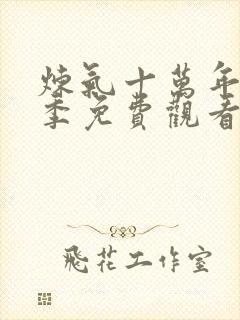 煉氣十萬年
季免費觀看
飛花工作室